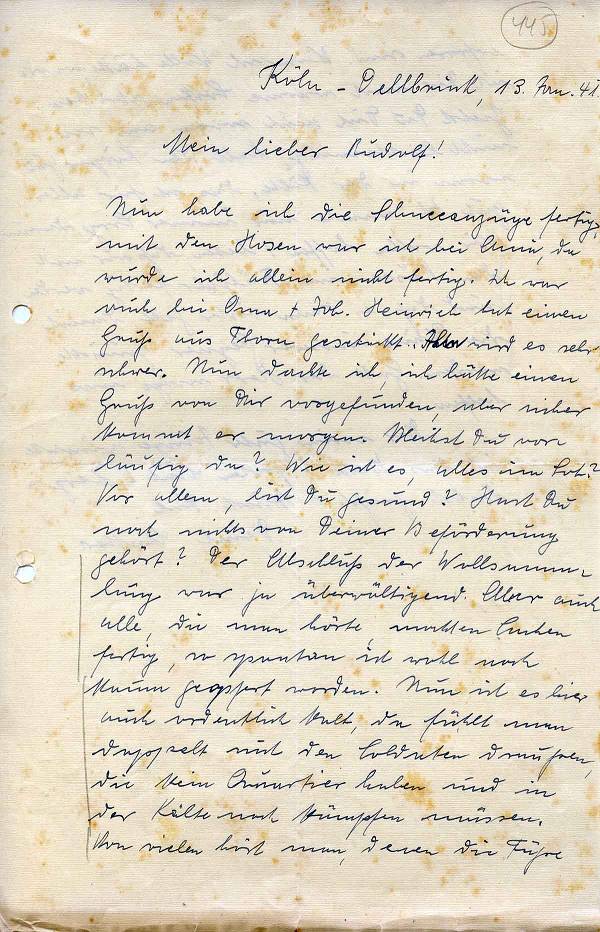 445
Köln - Dellbrück, 13. Jan. 41
Mein lieber Rudolf!
Nun habe ich die Schneeanzüge fertig,
mit den Hosen war ich bei Änni, da
wurde ich allein nicht fertig. Ich war
auch bei Oma + Joh. Heinrich hat einen
Gruß aus Thorn geschickt. wird es sehr
schwer. Nun dachte ich, ich hätte einen
Gruß von Dir vorgefunden, aber sicher
kommt er morgen. Bleibst Du vor-
läufig da? Wie ist es, alles im Lot?
Vor allem, bist Du gesund? Hast Du
noch nichts von Deiner Beförderung
gehört? Der Abschluß der Wollsamm-
lung war ja überwältigend. Aber auch
alle, die man hörte, machten Sachen
fertig, so spontan ist wohl noch
kaum geopfert worden. Nun ist es hier
auch ordentlich kalt, da fühlt man
doppelt mit den Soldaten draußen,
die kein Quartier haben und in
der Kälte noch kämpfen müssen.
Von vielen hört man, denen die Füße